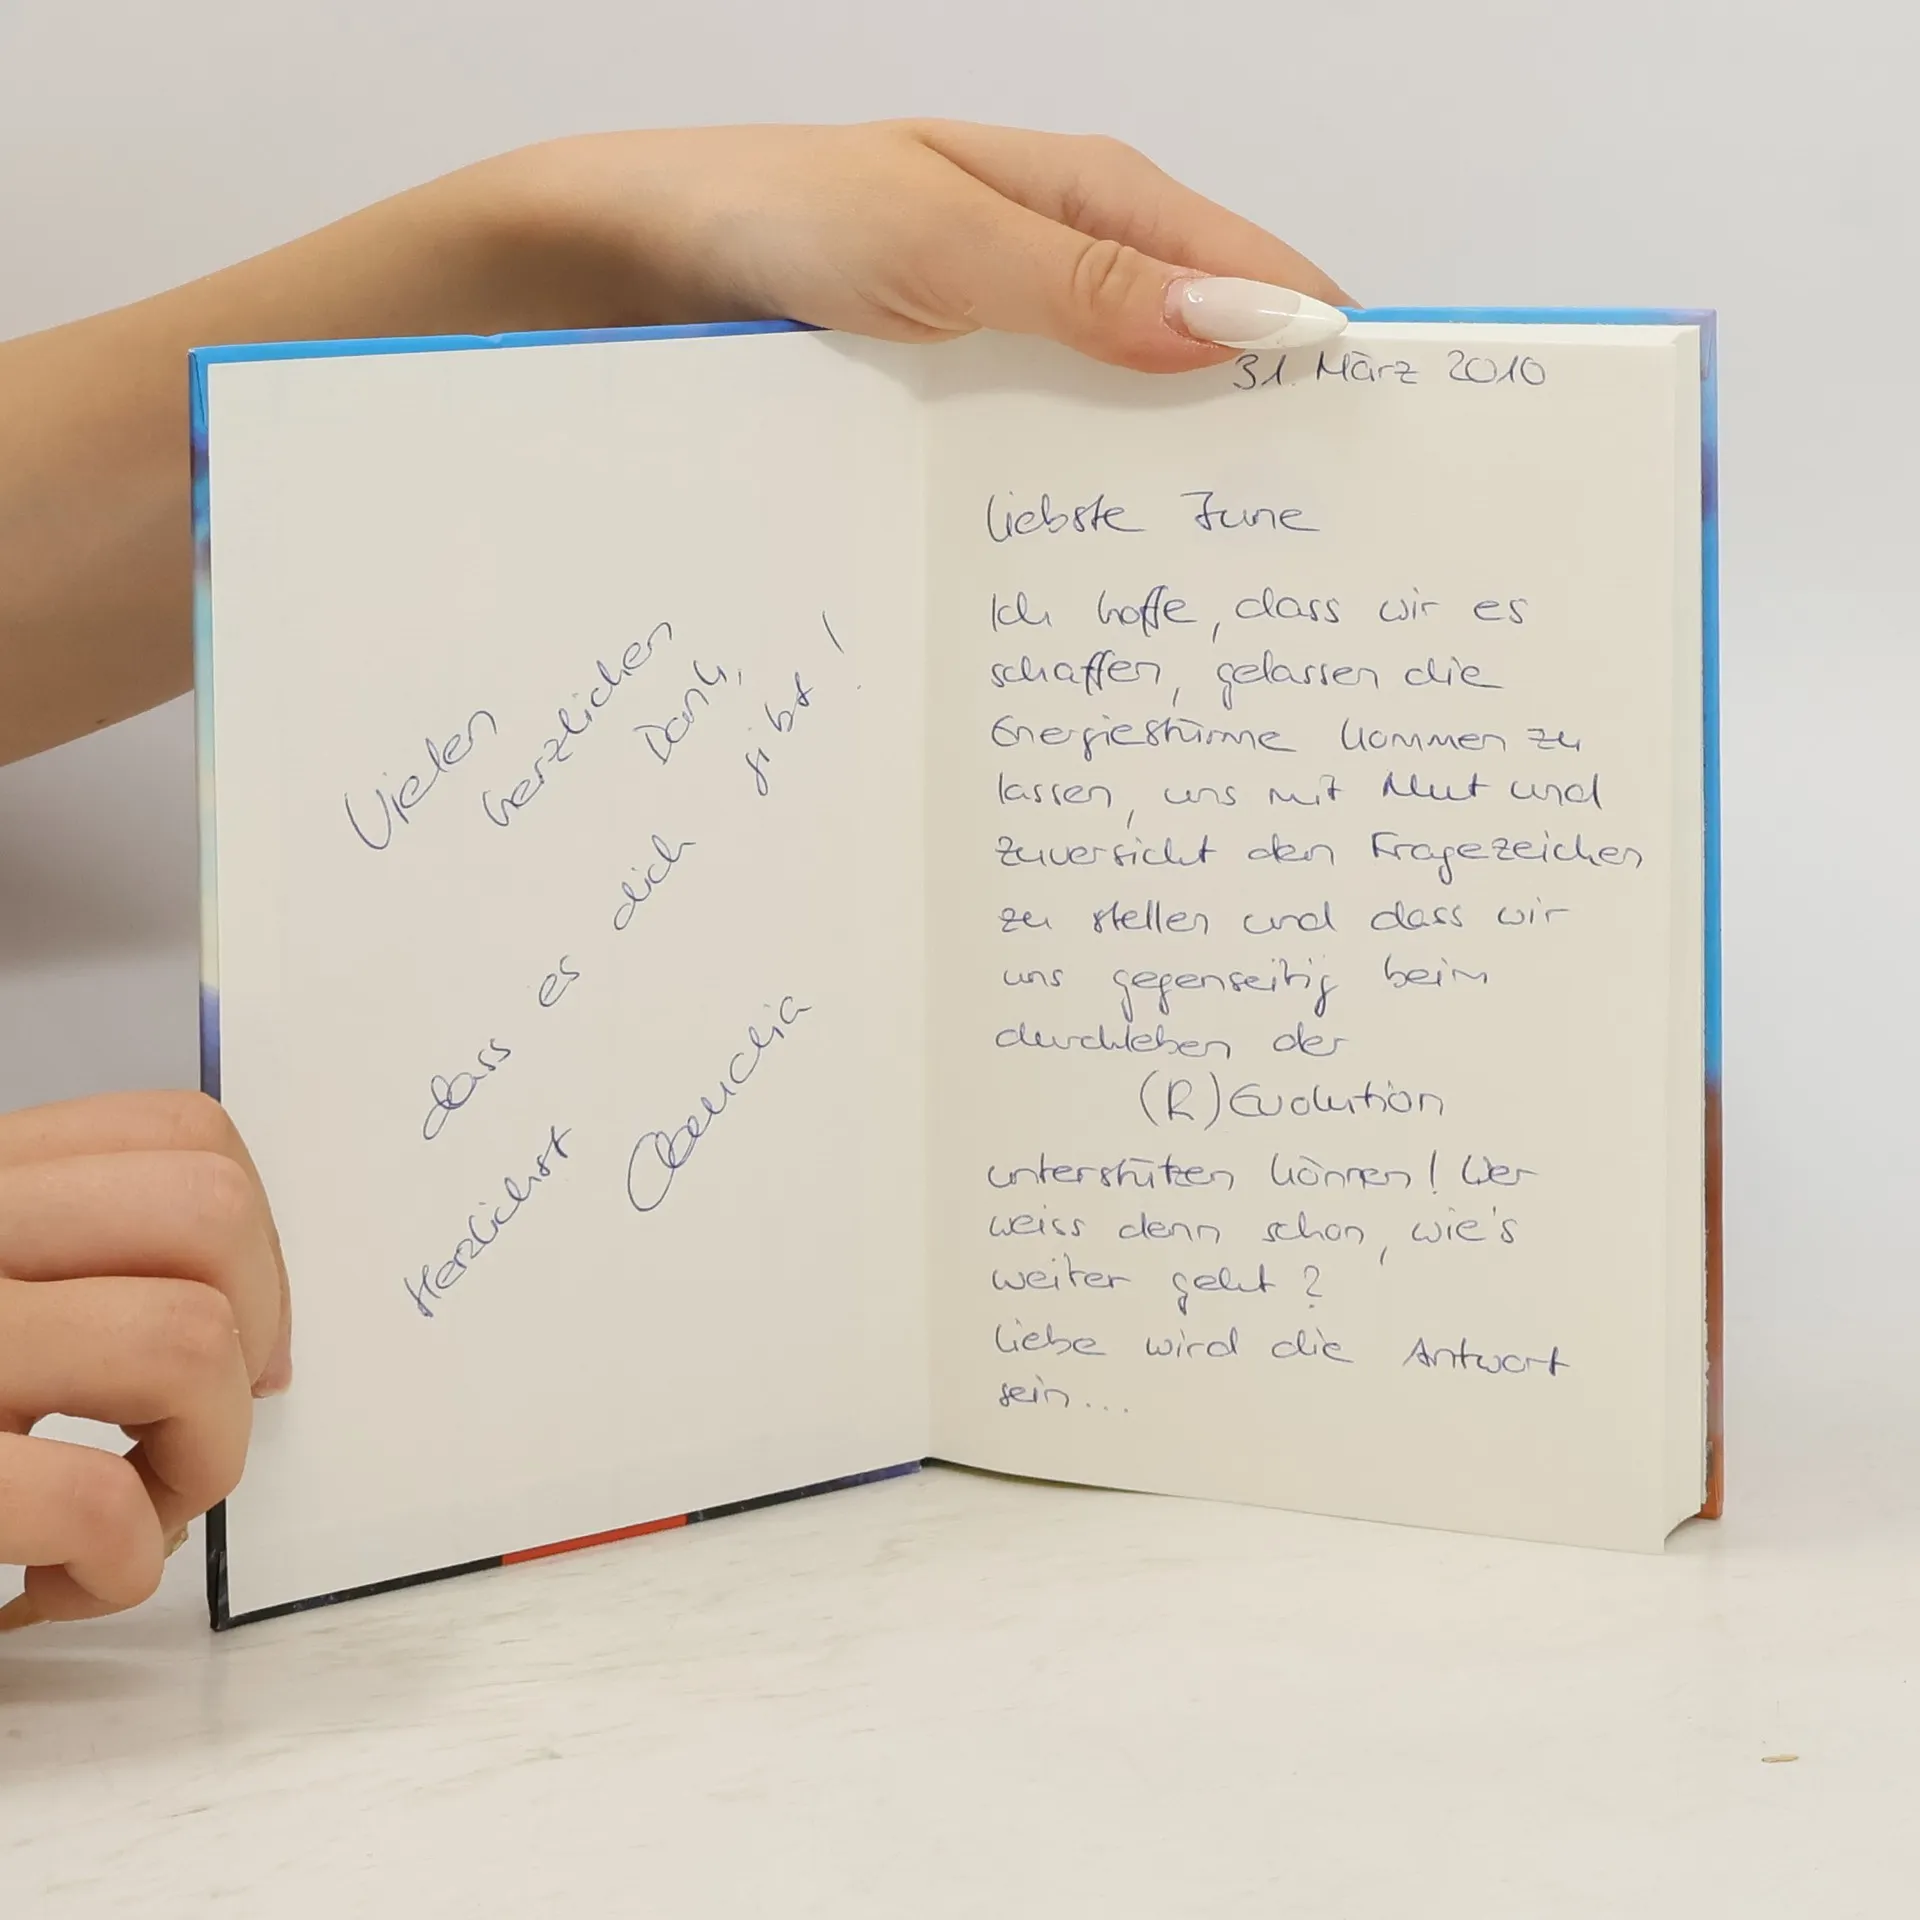 Vielen
herzlichen
Dank,
dass es dich gibt!
Herzlichst
31. März 2010
Liebste June
Ich hoffe, dass wir es
schaffen, gelassen die
Energiestürme kommen zu
lassen, uns mit Mut und
Zuversicht den Fragezeichen
zu stellen und dass wir
uns gegenseitig beim
durchleben der
(R)Evolution
unterstützen können! Wer
weiss denn schon, wie's
weiter geht?
Liebe wird die Antwort
sein...